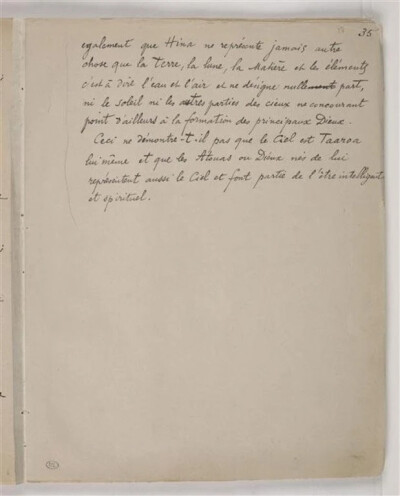 35
egalement que Hina ne représente jamais autre
chose que la Terre, la lune, la Matière et les éléments
c'est à dire l'eau et l'air et ne désigne nullement part,
ni le soleil ni les astres parties des cieux ne concourant
point d'ailleurs à la formation des principaux Dieux.
Ceci ne démontre-t-il pas que le Ciel est Taaroa
lui même et que les Atouas ou Dieux nés de lui
représentent aussi le Ciel et font partie de l'être intelligent
et spirituel.